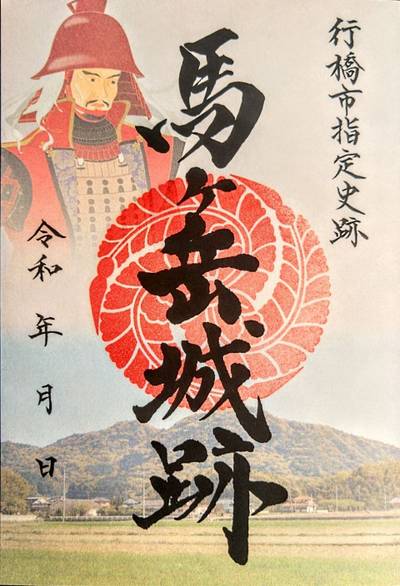 行橋市指定史跡
馬ヶ岳城跡
令和 年 月 日